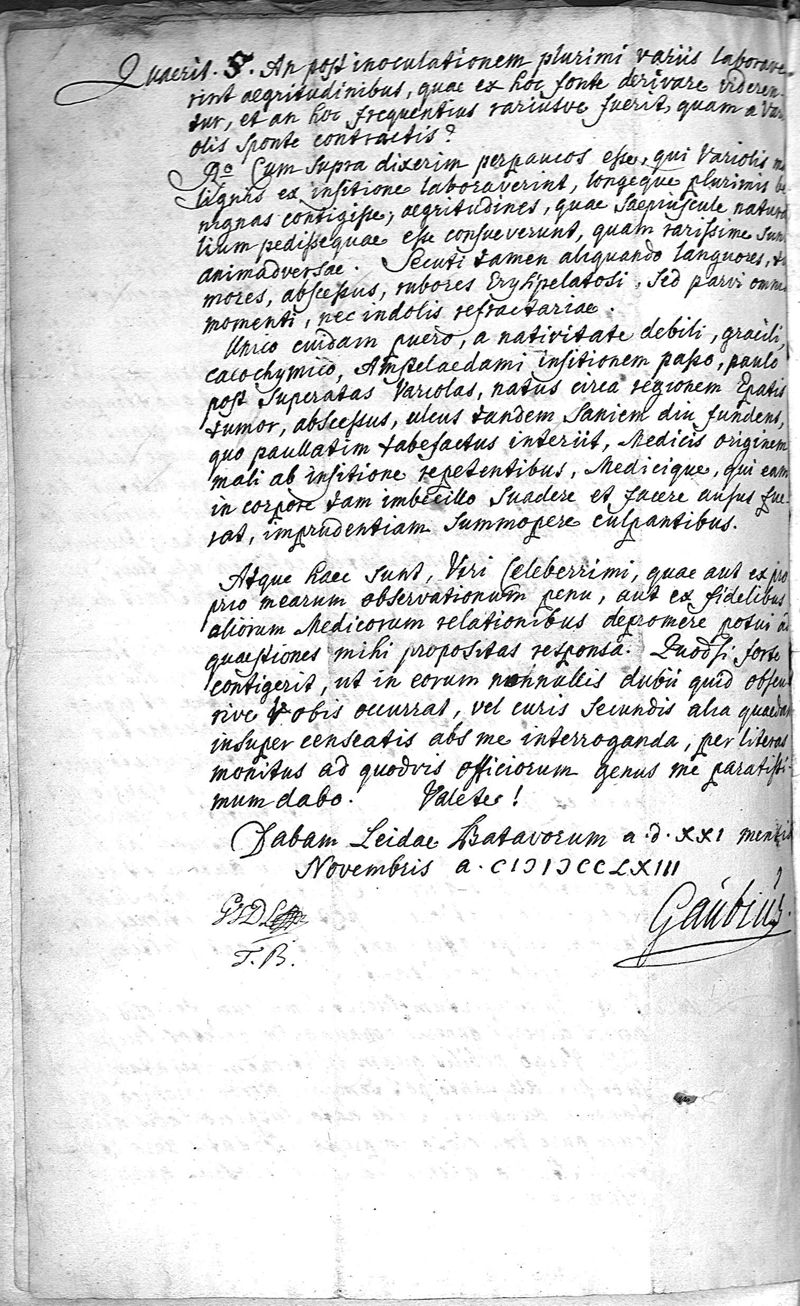 Quaerit. 5. An post inoculationem plurimi variis laborave-
rint aegritudinibus, quae ex hoc fonte derivare videren-
tur, et an hoc frequentius rariusve fuerit, quam a Vari
olis sponte contractis?
Ro Cum supra dixerim perpaucos esse, qui Variolis ma
lignis ex insitione laboraverint, longeque plurimis be
nignas contigisse, aegritudines, quae saepiuscule natura
lium pedissequae esse consueverunt, quam rarissime sunt
animadversae. Secuti tamen aliquando languores, tu
mores, abscessus, rubores Erysipelatosi, sed parvi omnes
momenti, nec indolis refractariae.
Unico cuidam puero, a nativitate debili, gracili,
cacochymico, Amstelaedami insitionem passo, paulo
post superatas Variolas, natus circa regionem Epatis
tumor, abscessus, ulcus tandem Saniem diu fundens,
quo paullatim tabefactus interiit, Medicis originem
mali ab insitione repetentibus, Medicique, qui eam
in corpore tam imbecillo suadere et facere ausus fue-
rat, imprudentiam summopere culpantibus.
Atque haec sunt, Viri Celeberrimi, quae aut ex pro
prio mearum observationum penu, aut ex fidelibus
aliorum Medicorum relationibus depromere potui ad
quaestiones mihi propositas responsa. Quodsi forte
contigerit, ut in eorum nonnullis dubii quid obscu
rive Vobis occurrat, vel curis secundis alia quaedam
insuper censeatis abs me interroganda, per literas
monitus ad quodvis officiorum genus me paratissi-
mum dabo. Valete!
Dabam Leidae Batavorum a. d. XXI mensis
Novembris a. CIƆIƆCCLXIII
Gaubius.
T. B.